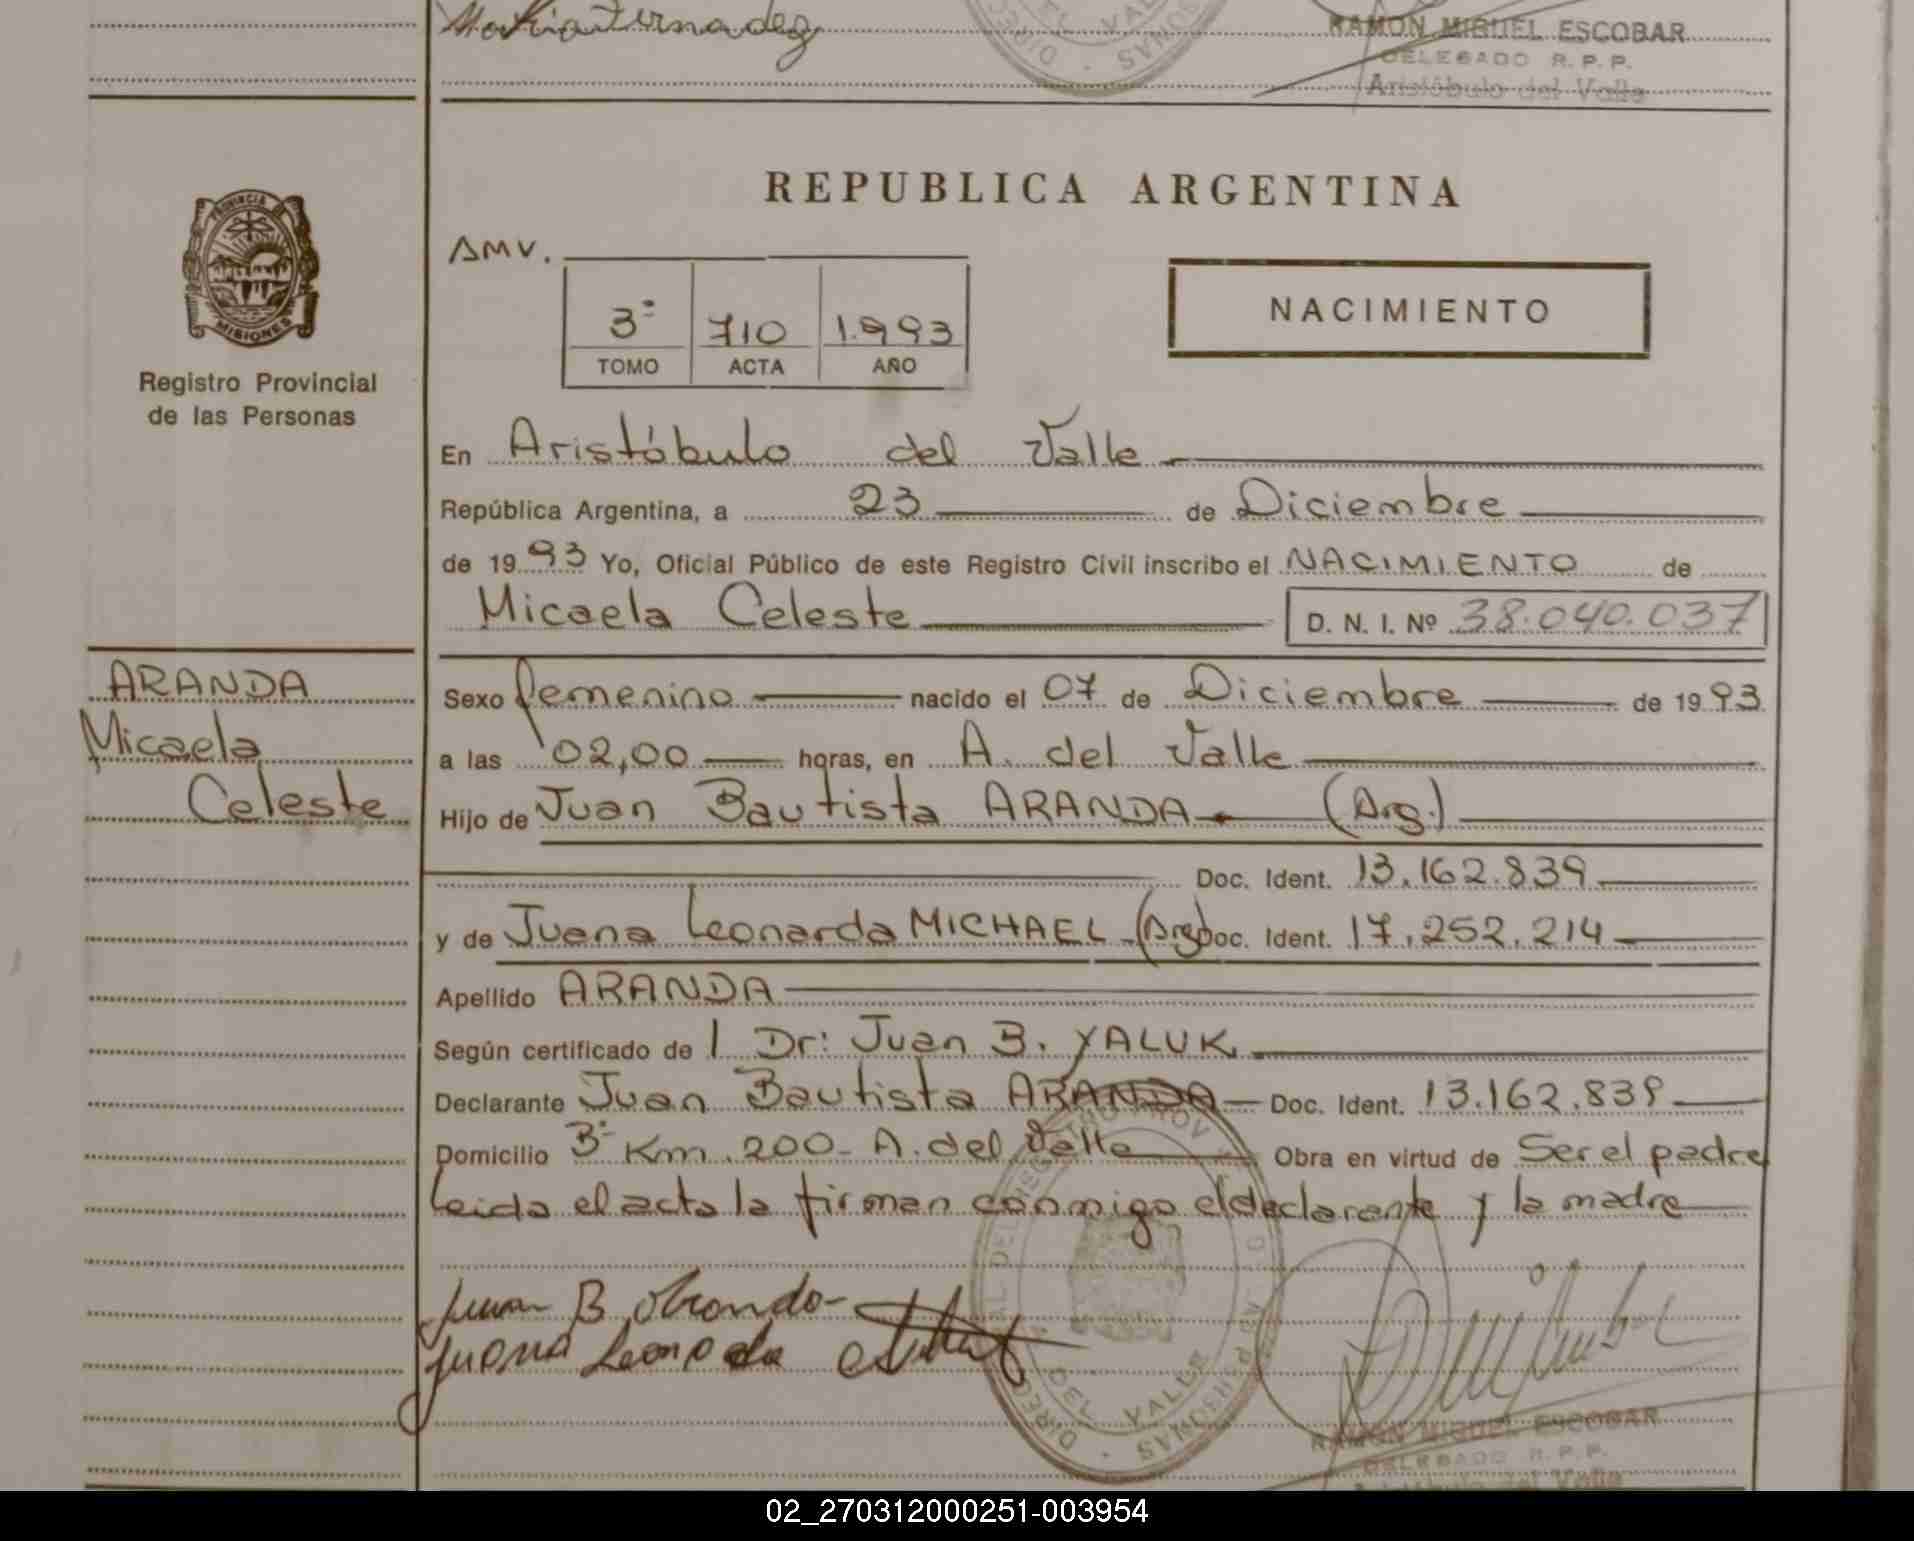 RAMON MIGUEL ESCOBAR
DELEGADO R. P. P.
Aristóbulo del Valle
PROVINCIA DE
MISIONES
Registro Provincial
de las Personas
REPUBLICA ARGENTINA
AMV.
3º 710 1.993
TOMO ACTA AÑO
NACIMIENTO
En Aristóbulo del Valle
República Argentina, a 23 de Diciembre
de 1993 Yo, Oficial Público de este Registro Civil inscribo el NACIMIENTO de
Micaela Celeste D. N. I. Nº 38.040.037
ARANDA
Micaela
Celeste
Sexo femenino nacido el 07 de Diciembre de 1993
a las 02,00 horas, en A. del Valle
Hijo de Juan Bautista ARANDA (Arg.)
Doc. Ident. 13.162.839
y de Juana Leonarda MICHAEL (Arg) Doc. Ident. 17.252.214
Apellido ARANDA
Según certificado de l Dr: Juan B. YALUK
Declarante Juan Bautista ARANDA Doc. Ident. 13.162.839
Domicilio 3º Km. 200- A. del Valle Obra en virtud de Ser el padre
Leida el acta la firman conmigo el declarante y la madre
Juan B Aranda
Juana Leonarda
DEL VALLE
RAMON MIGUEL ESCOBAR
DELEGADO R. P. P.
Aristóbulo del Valle
02_270312000251-003954